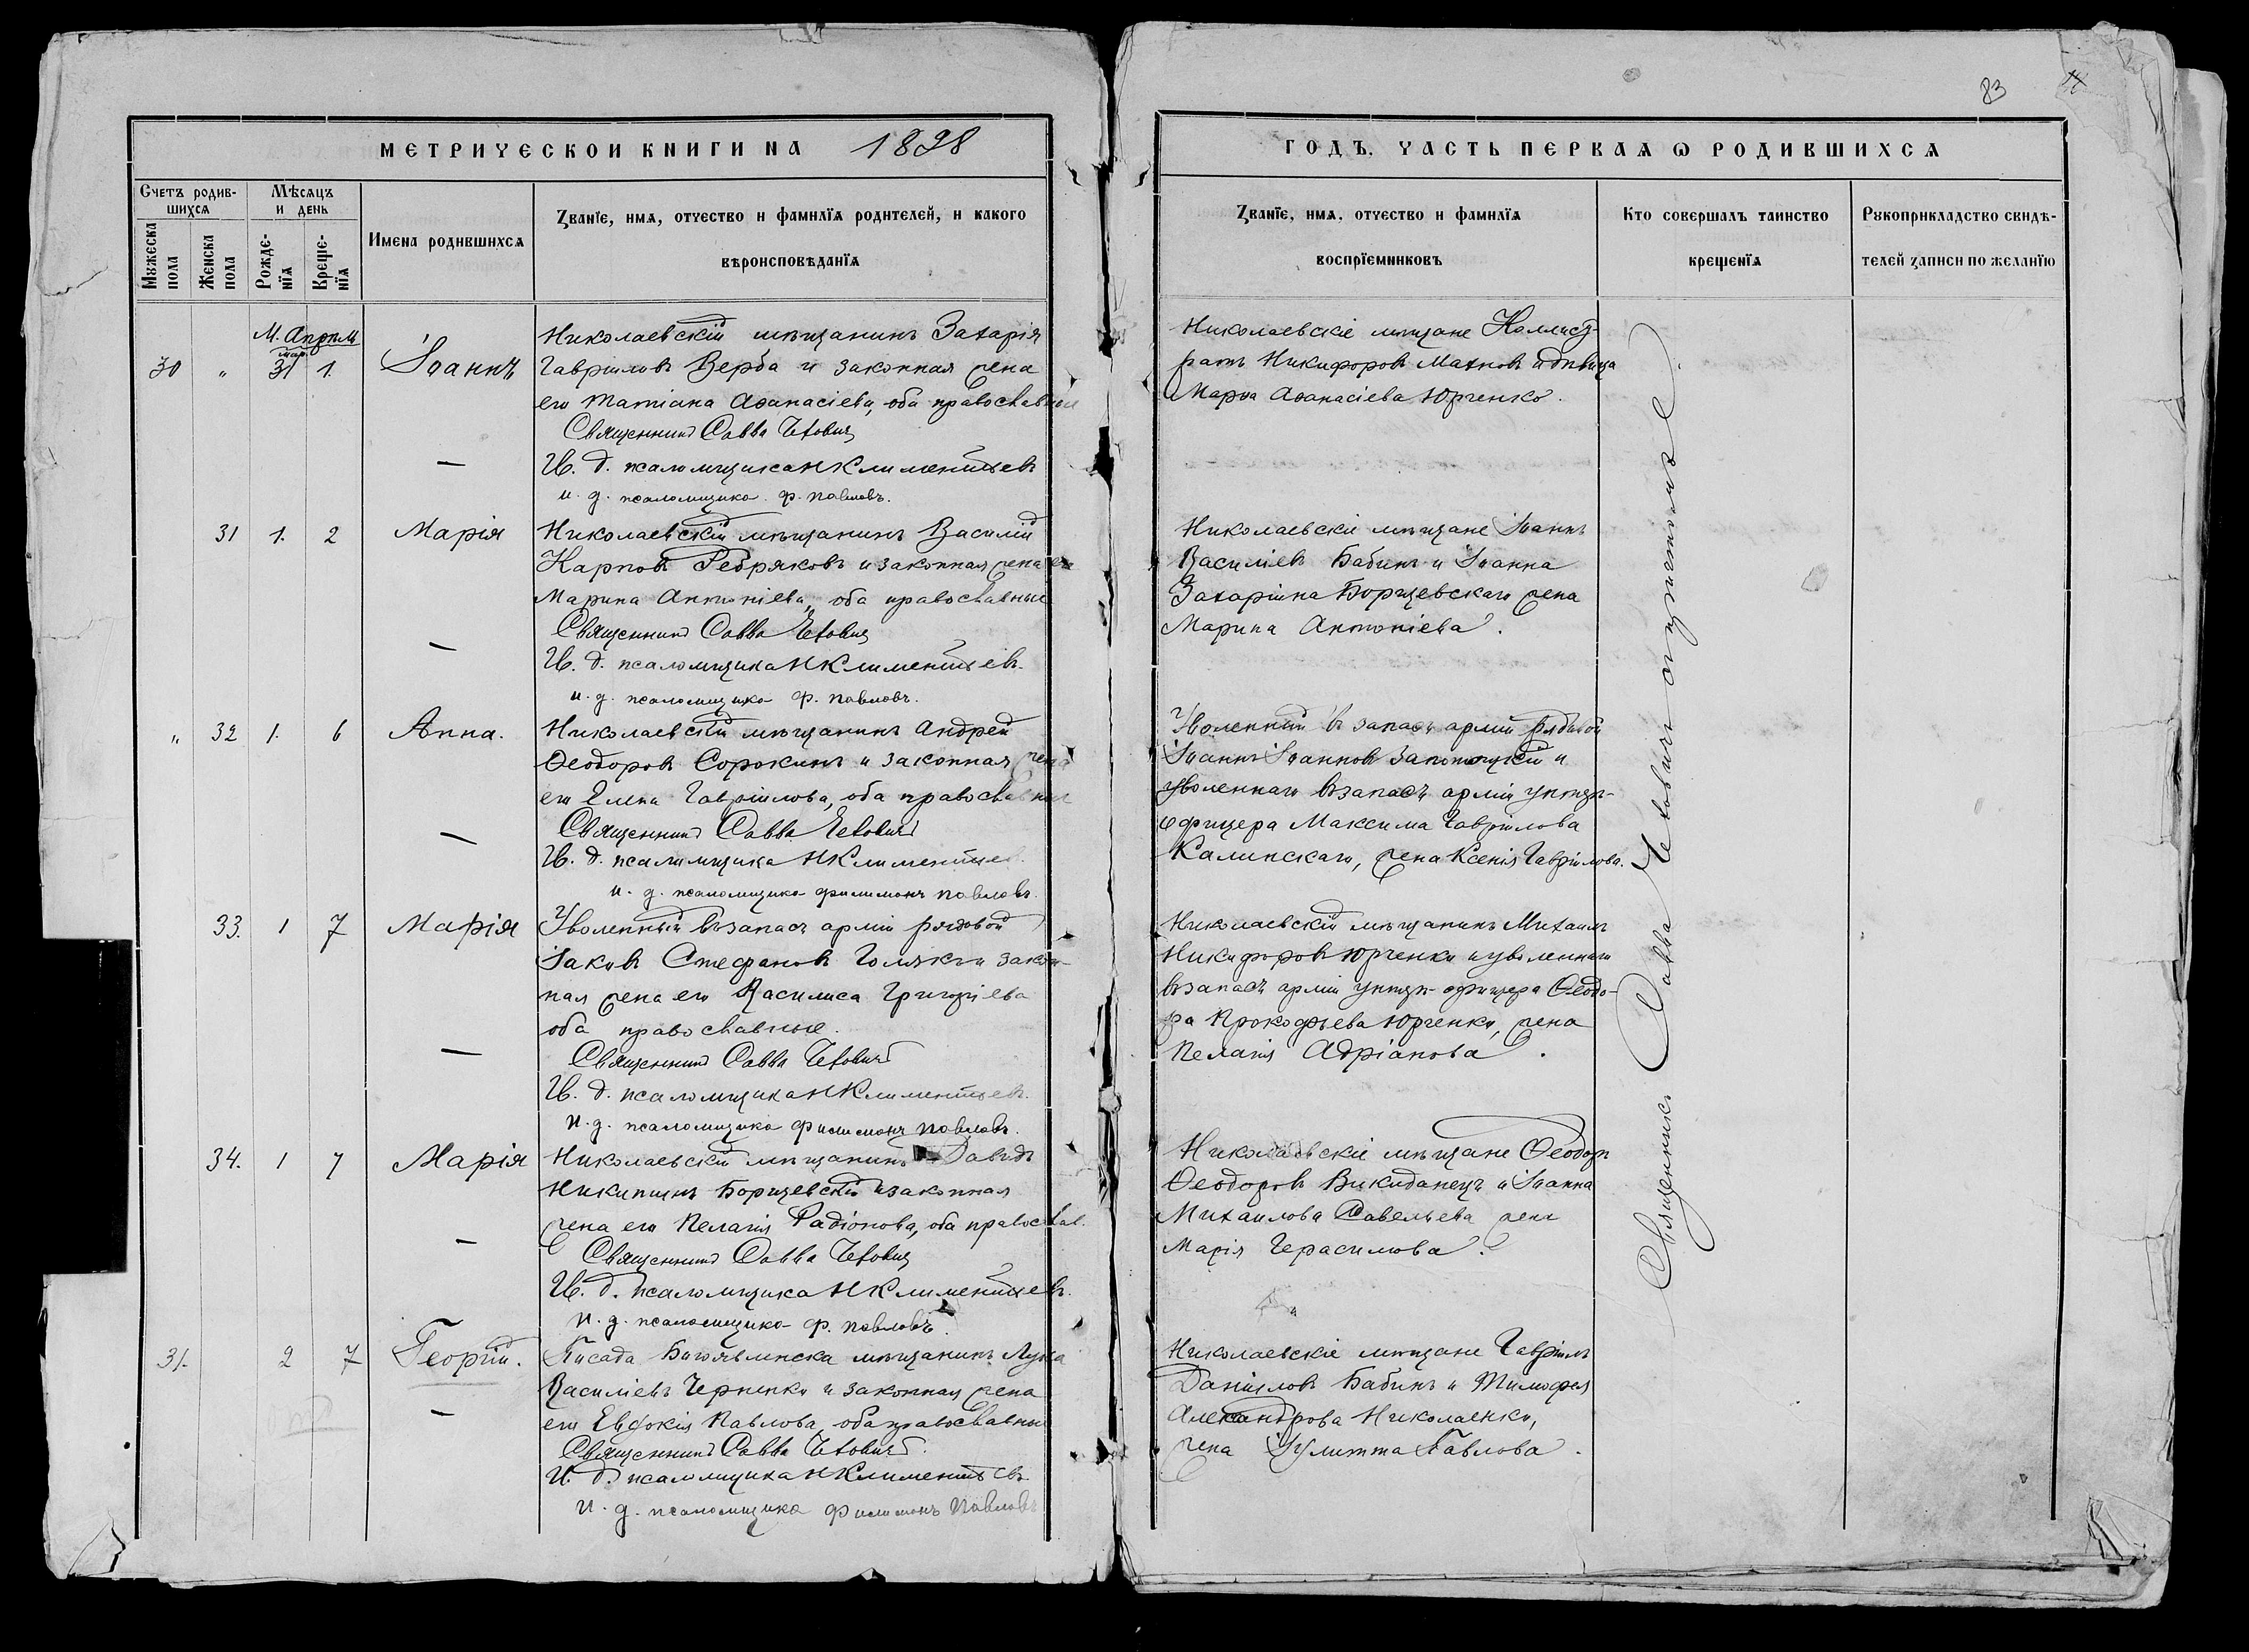 83
МЕТРИЧЕСКОИ КНИГИ НА 1898
ГОДЪ, ЧАСТЬ ПЕРВАЯ Ѡ РОДИВШИХСЯ
Счетъ родив-
шихся
Мѣсяцъ
и день
Мужеска
пола
Женска
пола
Рожде-
нїя
Креще-
нїя
Имена родившихся
Званїе, имя, отчество и фамилїя родителей, и какого
вѣроисповѣданїя
Званїе, имя, отчество и фамилїя
воспрїемниковъ
Кто совершалъ таинство
крещенїя
Рукоприкладство свидѣ-
телей записи по желанїю
М. Апрѣль
мар.
30 " 31 1. Іоаннъ
Николаевскій мѣщанинъ Захарія
Гавріиловъ Верба и законная жена
его Татіана Аѳанасіева, оба православные
Священникъ Савва
И. д. псаломщика Н Климентьевъ
и. д. псаломщика ф. Павловъ.
Николаевскіе мѣщане Каллист-
ратъ Никифоровъ Махновъ и дѣвица
Марѳа Аѳанасіева Юрченко.
31 1. 2 Марія
Николаевскій мѣщанинъ Василій
Карповъ Ребряковъ и законная жена его
Марина Антоніева, оба православные
Священникъ Савва
И. д. псаломщика Н Климентьевъ.
и. д. псаломщика ф. Павловъ.
Николаевскіе мѣщане Іоаннъ
Василіевъ Бабинъ и Іоанна
Захаріина Борщевскаго жена
Марина Антоніева.
" 32 1. 6 Анна.
Николаевскій мѣщанинъ Андрей
Ѳеодоровъ Сорокинъ и законная жена
его Елена Гавріилова, оба православные
Священникъ Савва
И. д. псаломщика Н Климентьев
и. д. псаломщика Филимонъ Павловъ.
Уволенный въ запасъ арміи рядовой
Іоаннъ Іоанновъ и
уволеннаго въ запасъ арміи унтеръ-
офицера Максима Гавріилова
Калинскаго, жена Ксенія Гавріилова.
33. 1 7 Марія
Уволенный въ запасъ арміи рядовой
Іаковъ Стефановъ Голякъ и закон-
ная жена его Василиса Григоріева
оба православные.
Священникъ Савва
И. д. псаломщика Н Климентьевъ.
и. д. псаломщика Филимонъ Павловъ.
Николаевскій мѣщанинъ Михаилъ
Никифоровъ Юрченко и уволеннаго
въ запасъ арміи унтеръ-офицера Ѳеодо-
ра Прокофьева Юрченко, жена
Пелагія Адріанова.
34. 1 7 Марія
Николаевскій мѣщанинъ Давидъ
Никитинъ Борщевскій и законная
жена его Пелагія Радіонова, оба православ.
Священникъ Савва
И. д. псаломщика Н Климентьевъ.
и. д. псаломщика ф. Павловъ.
Николаевскіе мѣщане Ѳеодоръ
Ѳеодоровъ Викиданецъ и Іоанна
Михаилова Савельева жена
Марія Герасимова.
31. 2 7 Георгій.
Посада Богоявленска мѣщанинъ Лука
Василіевъ Черненко и законная жена
его Евдокія Павлова, оба православные
Священникъ Савва
И. д. псаломщика Н Климентьевъ
и. д. псаломщика Филимонъ Павловъ
Николаевскіе мѣщане Гавріилъ
Даніиловъ Бабинъ и Тимофея
Александрова Николаенко,
жена Іулитта Павлова.
Священникъ Савва